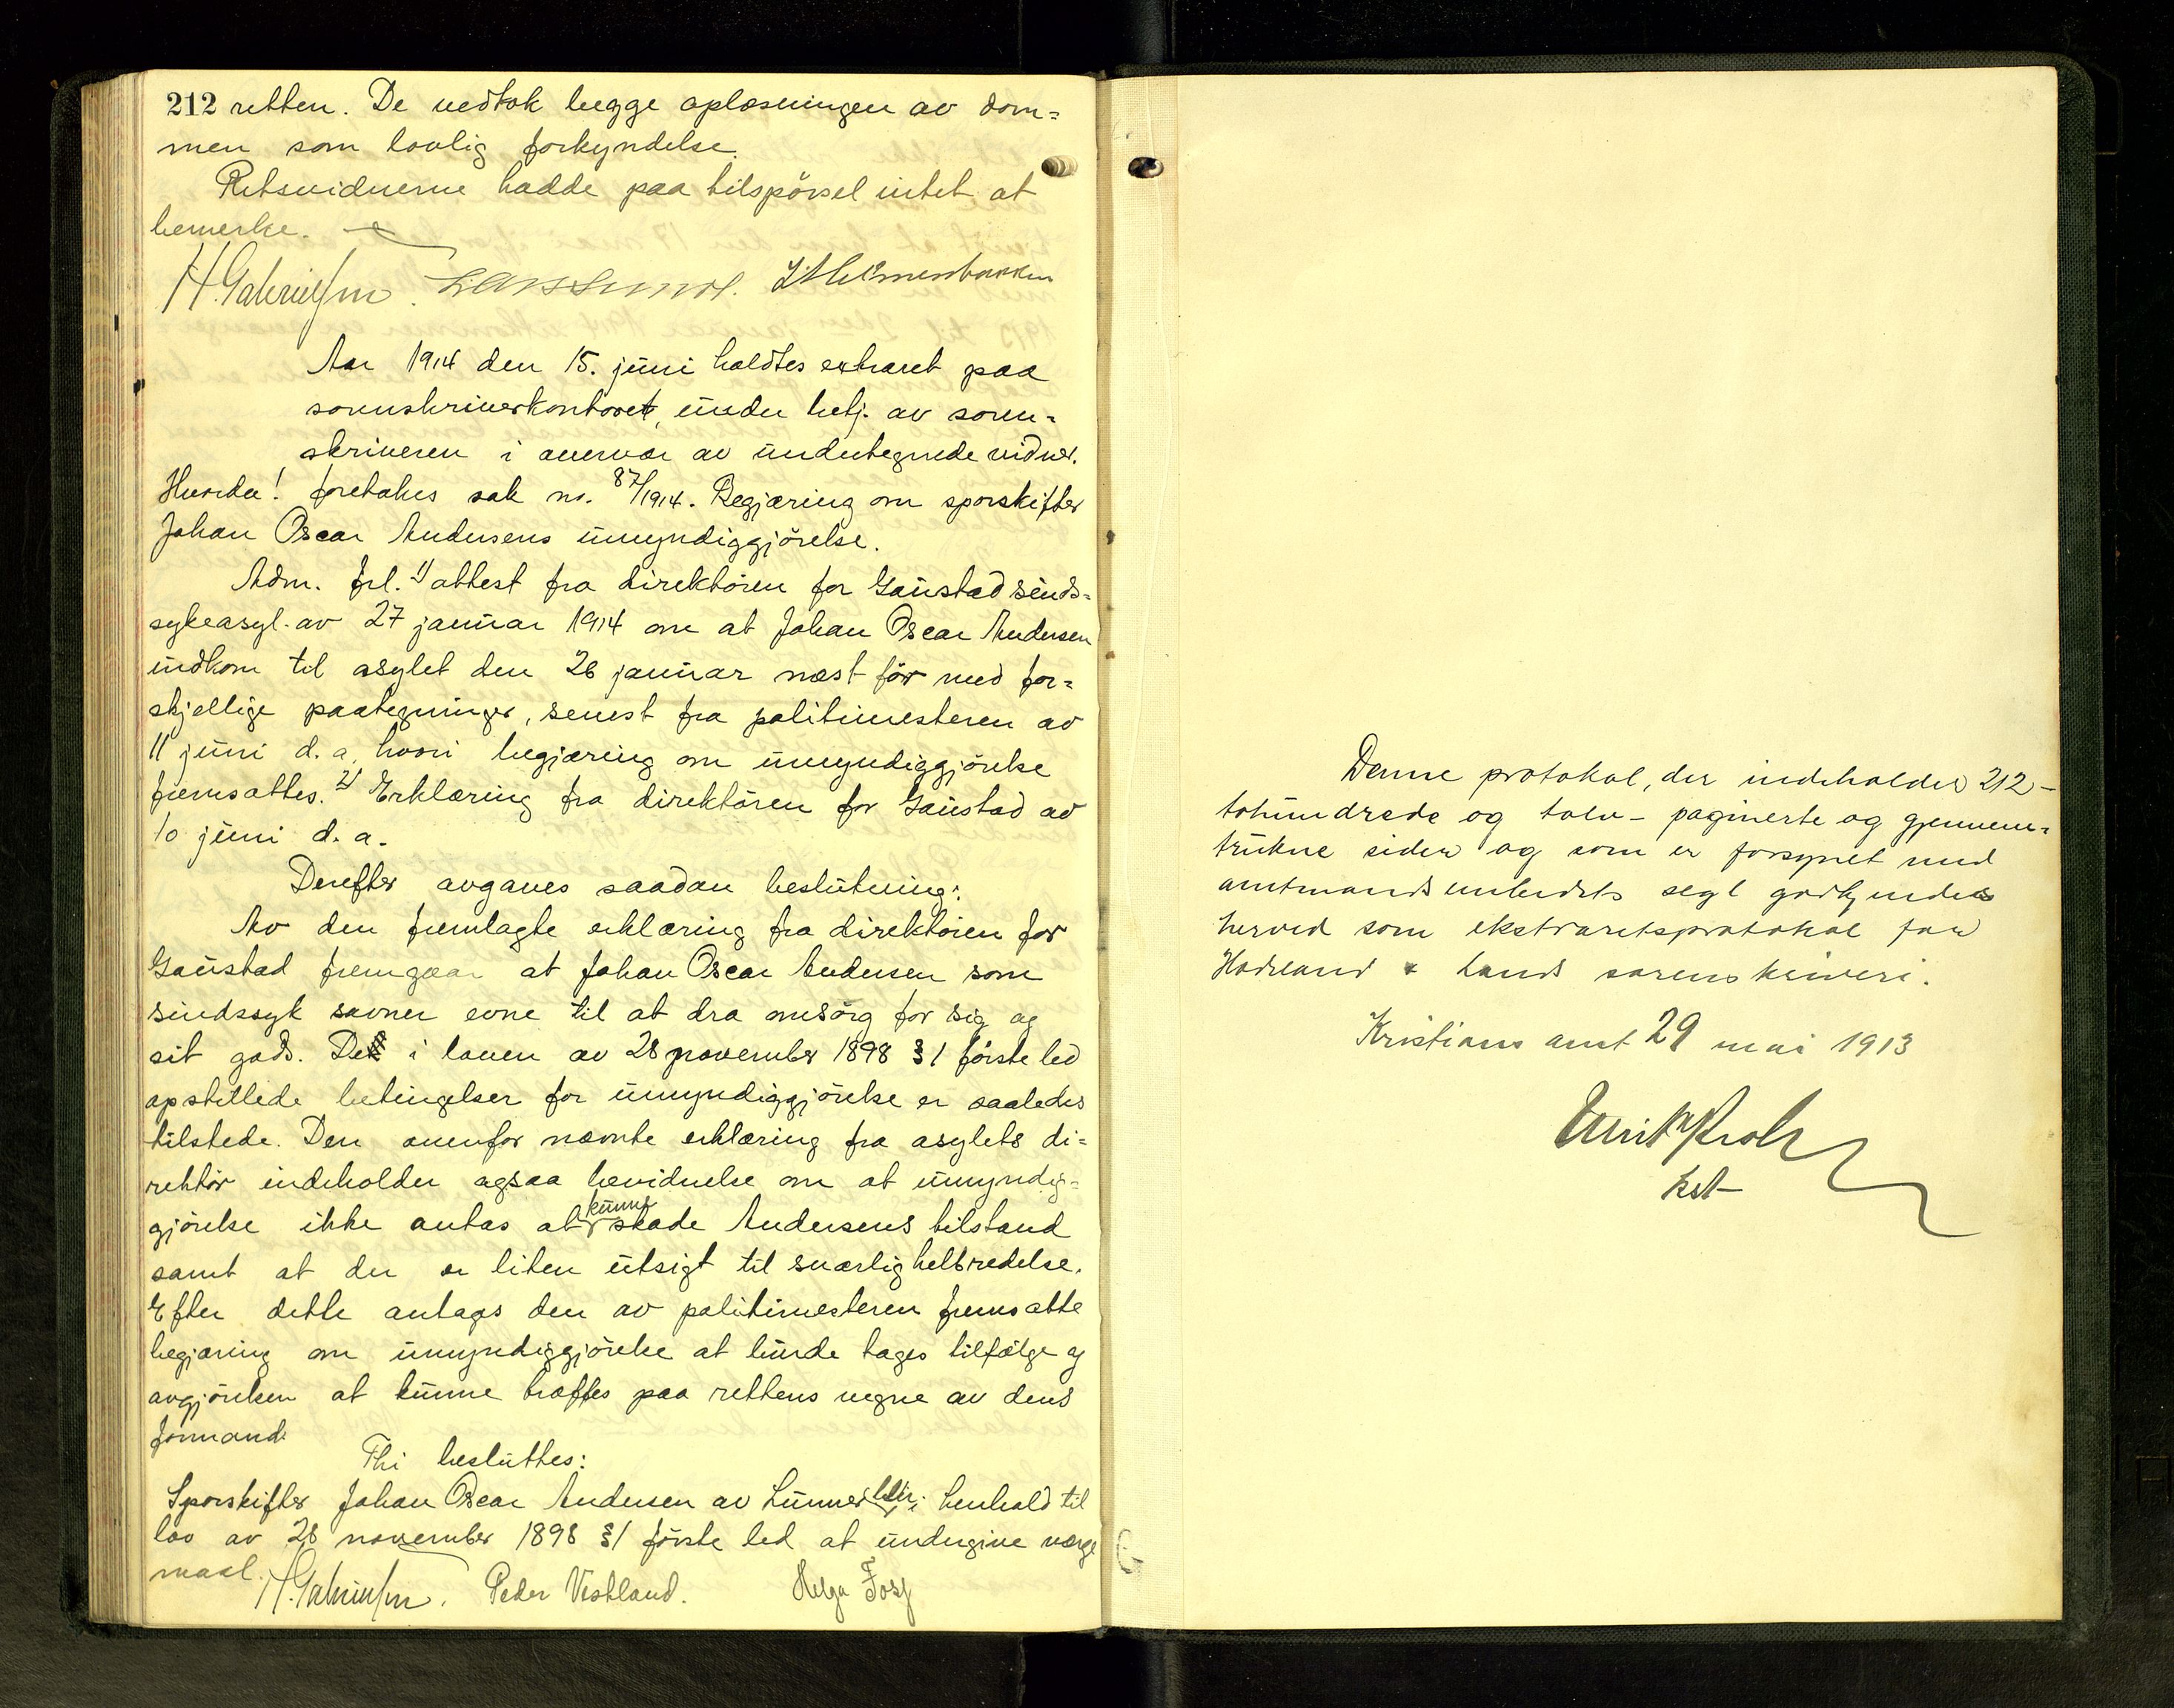 212 retten. De vedtok begge oplæsningen av dom=
men som lovlig forkyndelse.
Retsvidnerne hadde paa tilspörsel intet at
bemerke.
H. Gabrielsen.
Aar 1914 den 15. juni holdtes extraret paa
sorenskriverkontoret, under betj. av soren=
skriveren i overvær av undertegnede vidner.
Hvorda! foretokes sak no. 87/1914. Begjæring om sporskifter
Johan Oscar Andersens umyndiggjörelse.
Adm. frl. 1) attest fra direktören for Gaustad sinds=
sykeasyl av 27 januar 1914 om at Johan Oscar Andersen
indkom til asylet den 26 januar næst för med for=
skjellige paategninger, senest fra politimesteren av
11 juni d. a, hvori begjæring om umyndiggjörelse
fremsattes. 2) Erklæring fra direktören for Gaustad av
10 juni d. a.
Derefter avgaves saadan beslutning:
Av den fremlagte erklæring fra direktören for
Gaustad fremgaar at Johan Oscar Andersen som
sindssyk savner evne til at dra omsorg for sig og
sit gods. De i loven av 28 november 1898 § 1 förste led
opstillede betingelser for umyndiggjörelse er saaledes
tilstede. Den ovenfor nævnte erklæring fra asylets di=
rektör indeholder ogsaa bevidnelse om at umyndig=
gjörelse ikke antas at kunne skade Andersens tilstand
samt at der er liten utsigt til snarlig helbredelse.
Efter dette antages den av politimesteren fremsatte
begjæring om umyndiggjörelse at burde tages tilfölge og
avgjörelsen at kunne træffes paa rettens vegne av dens
formand.
Thi besluttes:
Sporskifter Johan Oscar Andersen av Lunner blir i henhold til
lov av 28 november 1898 § 1 förste led at undergive værge
maal.
H. Gabrielsen. Peder Vestland. Helga Fosf
Denne protokol, der indeholder 212 -
tohundrede og tolv - paginerte og gjennem=
trukne sider og som er forsynet med
amtmandsembedets segl godkjendes
herved som ekstraretsprotokol for
Hadeland & Lands sorenskriveri.
Kristians amt 29 mai 1913
kst